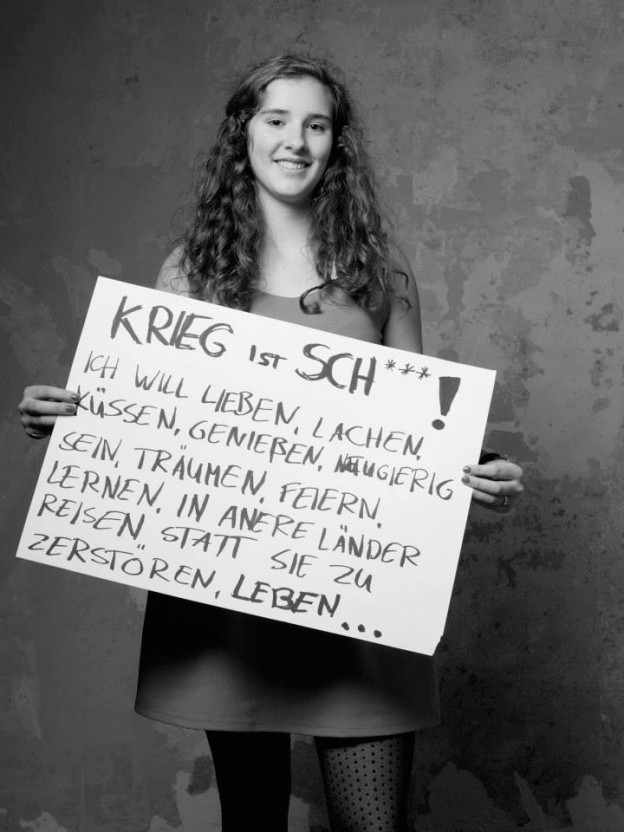 KRIEG IST SCH***!
ICH WILL LIEBEN, LACHEN,
KÜSSEN, GENIEßEN, NEUGIERIG
SEIN, TRÄUMEN, FEIERN,
LERNEN, IN ANERE LÄNDER
REISEN, STATT SIE ZU
ZERSTÖREN, LEBEN...